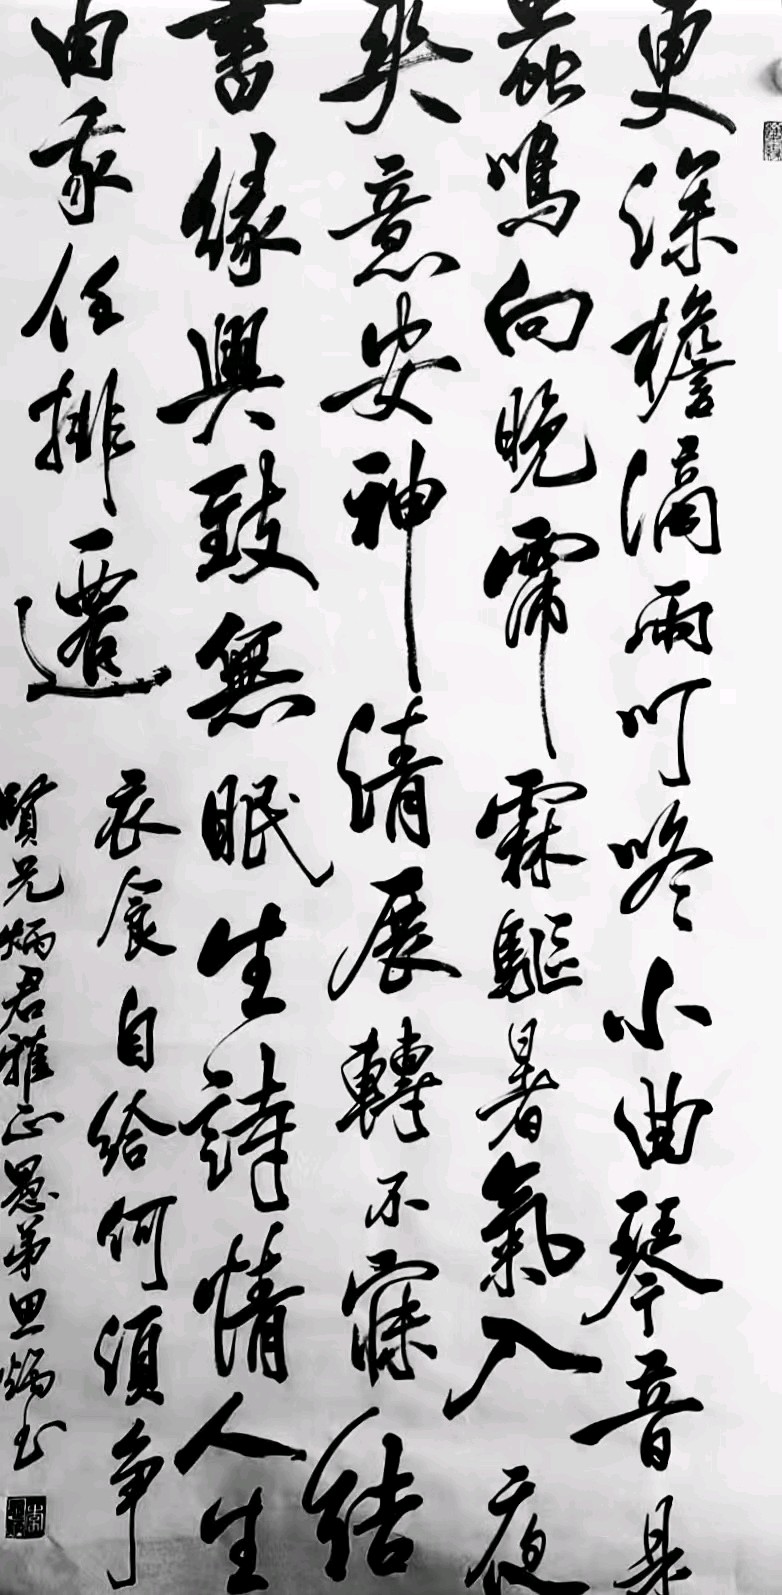 更深檐滴雨叮咚小曲琴音是
蟲鳴向晚霈霖驅暑氣入夜
爽意安神清展轉不寐結
書緣興致無眠生詩情人生
由我任排遷
衣食自給何須爭
賢兄炳君雅正愚弟思炳书